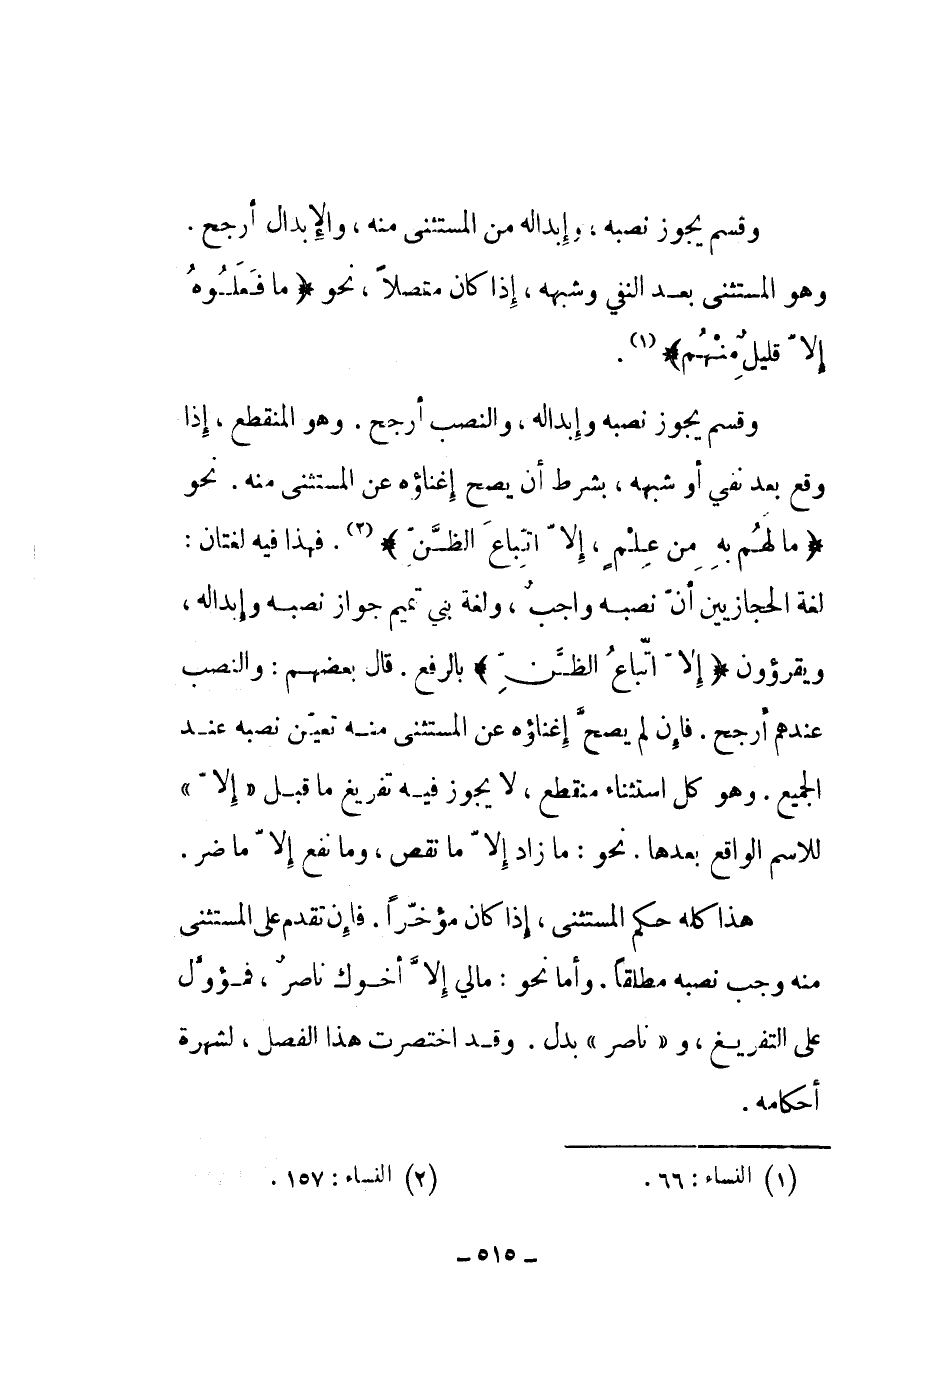 وقسم يجوز نصبه ، وإبداله من المستثنى منه ، والإبدال أرجح .
وهو المستثنى بعد النفي وشبهه ، إذا كان متصلاً ، نحو ﴿ ما فَعَلُوهُ
إلاّ قليلٌ مِنْهُم ﴾ (١) .
وقسم يجوز نصبه وإبداله ، والنصب أرجح . وهو المنقطع ، إذا
وقع بعد نفي أو شبهه ، بشرط أن يصح إغناؤه عن المستثنى منه . نحو
﴿ ما لَهُم بهِ مِن عِلْمٍ ، إلاّ اتِّباعَ الظَّنِّ ﴾ (٢) . فهذا فيه لغتان :
لغة الحجازيين أنّ نصبه واجبٌ ، ولغة بني تميم جواز نصبه وإبداله ،
ويقرؤون ﴿ إلاّ اتّباعُ الظَّنِّ ﴾ بالرفع . قال بعضهم : والنصب
عندهم أرجح . فإن لم يصحَّ إغناؤه عن المستثنى منه تعيّن نصبه عند
الجميع . وهو كل استثناء منقطع ، لا يجوز فيه تفريغ ما قبل « إلاّ »
للاسم الواقع بعدها . نحو : ما زاد إلاّ ما نقص ، وما نفع إلاّ ما ضر .
هذا كله حكم المستثنى ، إذا كان مؤخّراً . فإن تقدم على المستثنى
منه وجب نصبه مطلقاً . وأما نحو : مالي إلاَّ أخوك ناصرٌ ، فمؤوَّل
على التفريغ ، و « ناصر » بدل . وقد اختصرت هذا الفصل ، لشهرة
أحكامه .
(١) النساء : ٦٦ . (٢) النساء : ١٥٧ .
ـ ٥١٥ ـ